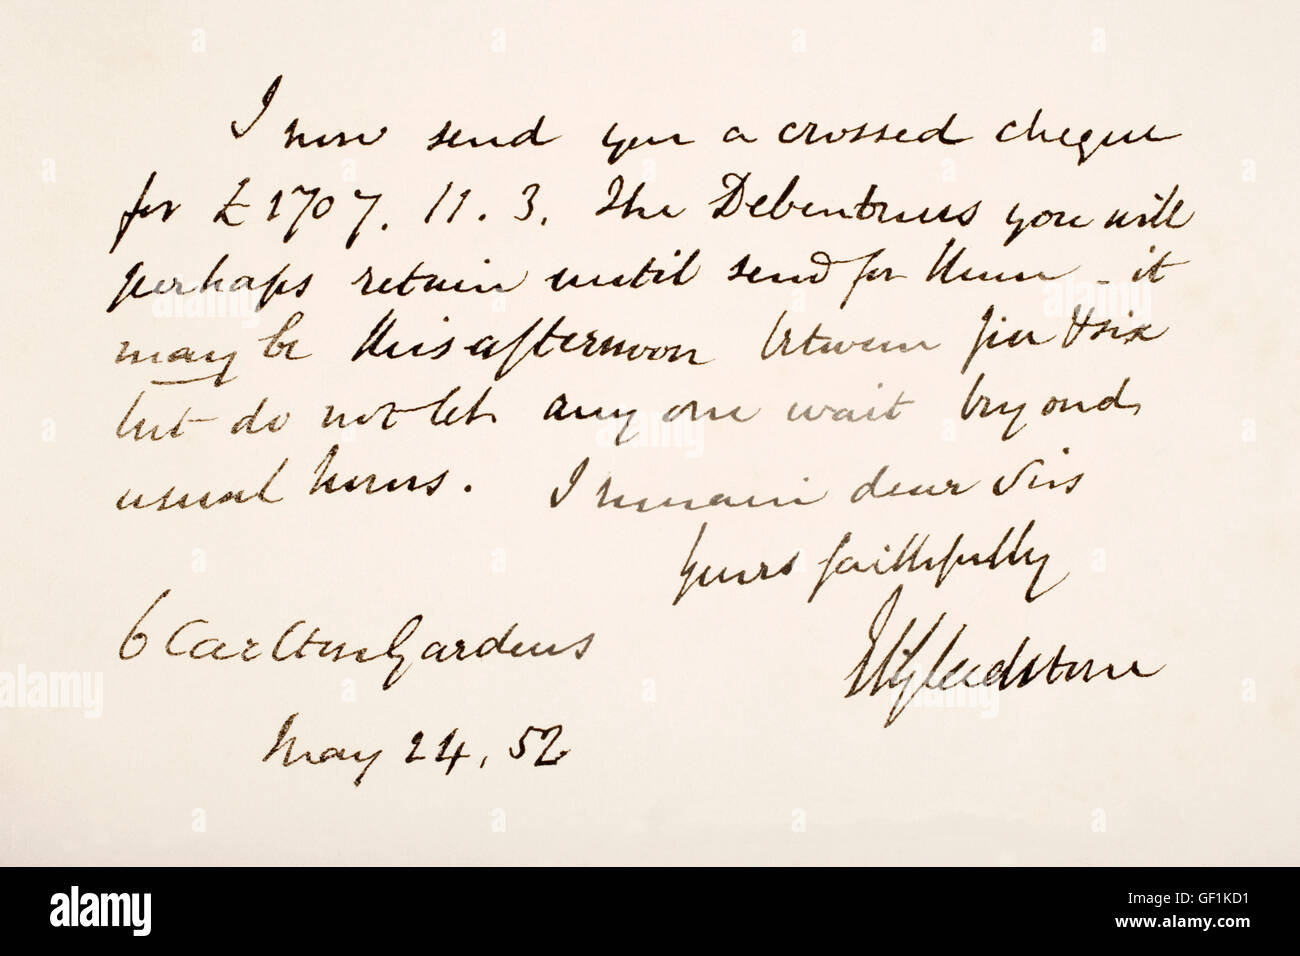 I now send you a crossed cheque
for £1707. 11. 3. The Debentures you will
perhaps retain until I send for them - it
may be this afternoon between five & six
but do not let any one wait beyond
usual hours. I remain dear Sirs
Yours faithfully
WEGladstone
6 Carlton Gardens
May 24, 52
alamy
Image ID: GF1KD1
www.alamy.com